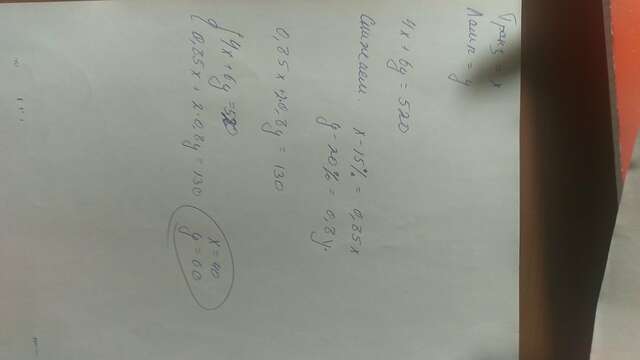 Транз = x
Лампа = y
4x + 6y = 520
Снижаем.
x - 15% = 0,85x
y - 20% = 0,8y.
0,85x + 2·0,8y = 130
{ 4x + 6y = 520
0,85x + 2·0,8y = 130
x = 40
y = 60